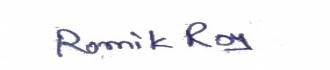 Romik Roy